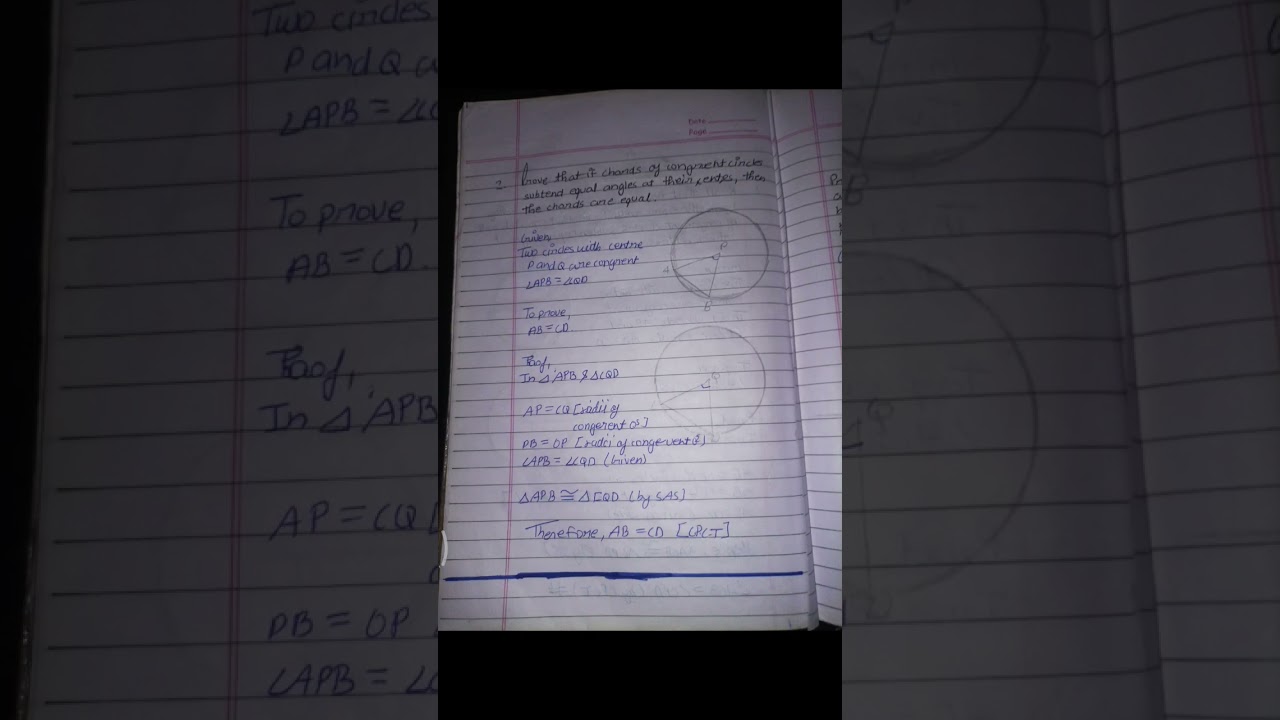 Date
Page
2. Prove that if chords of congruent circles
subtend equal angles at their centres, then
the chords are equal.
Given,
Two circles with centre
P and Q are congruent
∠APB = ∠CQD
To prove,
AB = CD
Proof,
In △ APB & △CQD
AP = CQ [radii of
congerent Os]
PB = QP [radii of congervent
∠APB = ∠CQD (Given)
△APB ≅ △CQD (by SAS)
Therefore, AB = CD [CPCT]
P
A
B
Q